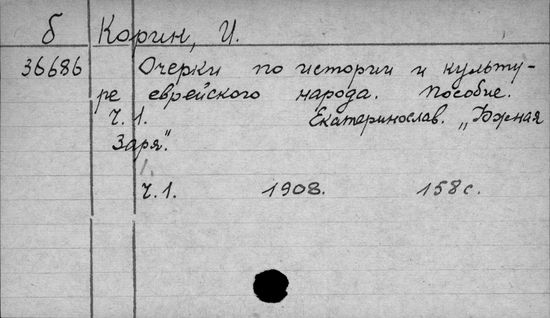 б Корин, И.
36686 Очерки по истории и культу-
ре еврейского народа. Пособие.
Ч. 1. Екатеринослав. „Южная
Заря".
Ч. 1. 1908. 158 с.